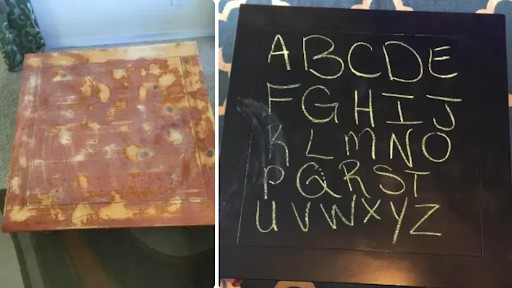 ABCDE
FGHIJ
KLmNO
PQRST
UVWXYZ